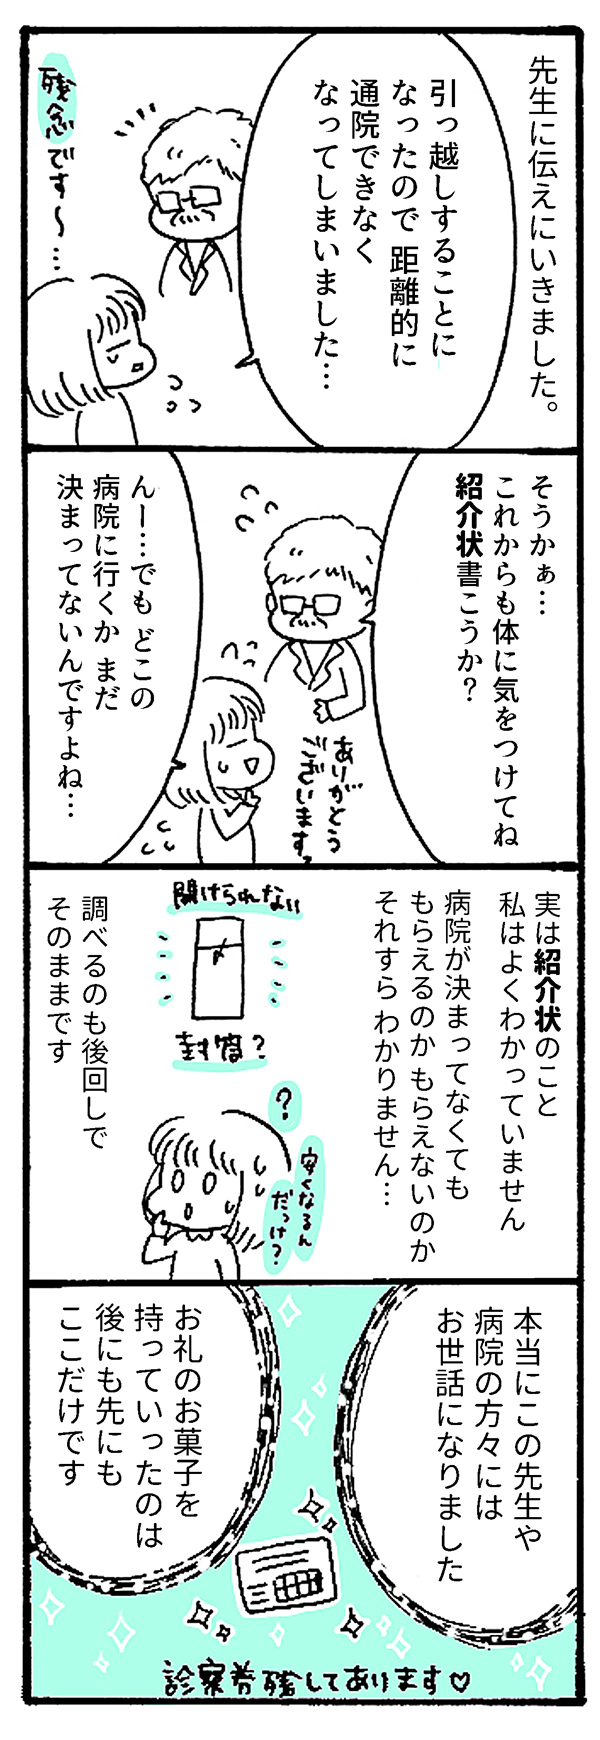 先生に伝えにいきました。
引っ越しすることに
なったので 距離的に
通院できなく
なってしまいました…
残念です〜…
そうかぁ…
これからも体に気をつけてね
紹介状書こうか?
ありがとう
ございます
んー…でも どこの
病院に行くか まだ
決まってないんですよね…
実は紹介状のこと
私はよくわかっていません
病院が決まってなくても
もらえるのか もらえないのか
それすら わかりません…
開けられない
〆
封筒?
?
安くなるん
だっけ?
調べるのも後回しで
そのままです
本当にこの先生や
病院の方々には
お世話になりました
お礼のお菓子を
持っていったのは
後にも先にも
ここだけです
診察券残してあります♡